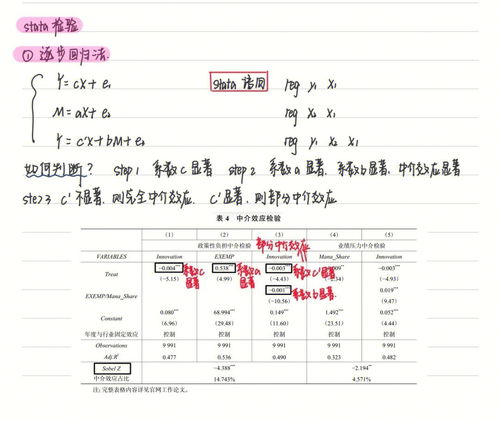 stata 检验
① 逐步回归法.
Y = cX + e₁ stata 语句 reg y₁ x₁
M = aX + e₂ reg x₂ x₁
Y = c'X + bM + e₃ reg y₁ x₂ x₁
如何判断? step 1 系数 c 显著 step 2 系数 a 显著. 系数 b 显著. 中介效应显著
step 3 c' 不显著. 则完全中介效应. c' 显著. 则部分中介效应.
表 4 中介效应检验
(1) (2) (3) (4) (5)
政策性负担中介检验 部分中介效应 业绩压力中介检验
VARIABLES Innovation EXEMP Innovation Mana_Share Innovation
Treat −0.004*** 系数c显著 0.538** 系数a显著 −0.003** 系数c'显著 −0.003***
(−5.15) (4.99) (−4.43) (−4.93)
EXEMP/Mana_Share −0.001*** 系数b显著. 0.019***
(−10.56) (9.47)
Constant 0.080*** 68.994*** 0.149*** 1.492*** 0.052***
(6.96) (29.48) (11.60) (23.51) (4.44)
年度与行业固定效应 控制 控制 控制 控制 控制
Observations 9 991 9 991 9 991 9 991 9 991
Adj.R² 0.477 0.536 0.490 0.323 0.482
Sobel Z −4.388*** −2.194**
中介效应占比 14.743% 4.571%
注: 完整表格内容详见官网工作论文。